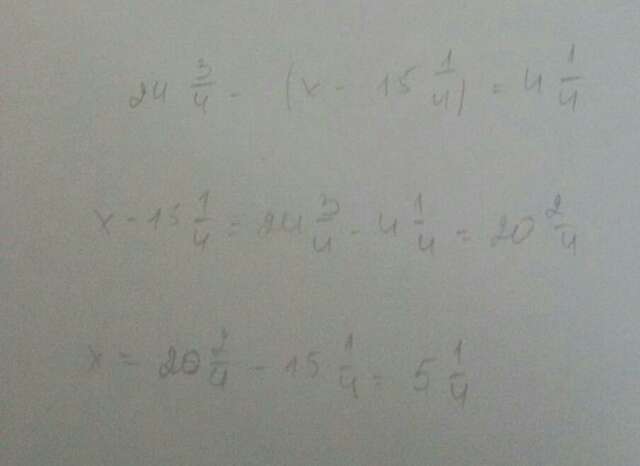 24 3/4 - (x - 15 1/4) = 4 1/4
x - 15 1/4 = 24 3/4 - 4 1/4 = 20 2/4
x = 20 2/4 - 15 1/4 = 5 1/4